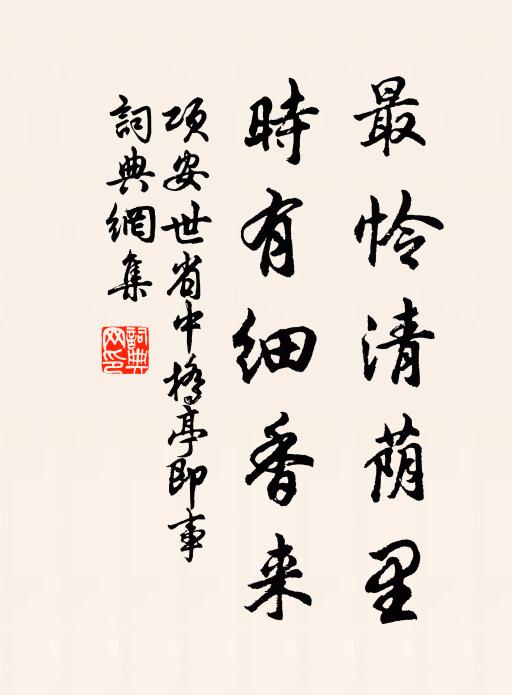 最怜清荫里
时有细香来
項安世省中橋亭即事
詞典網集
詞典
网印